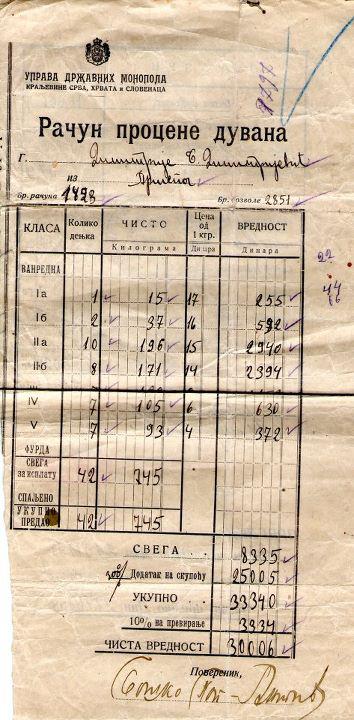 УПРАВА ДРЖАВНИХ МОНОПОЛА
КРАЉЕВИНЕ СРБА, ХРВАТА и СЛОВЕНАЦА
Рачун процене дувана
Г. Димитрије Б. Димитријевић
из
Бр. рачуна 1498 Бр. дозволе 2851
КЛАСА Колико дењка ЧИСТО Цена од 1 кгр. ВРЕДНОСТ
Килограма Динара Динара
ВАНРЕДНА
Iа 1 15 17 255
Iб 2 37 16 592
IIа 10 196 15 2940
IIб 8 171 14 2394
IV 7 105 6 630
V 7 93 4 372
ФУРДА
СВЕГА за исплату 42 745
СПАЉЕНО
УКУПНО ПРЕДАО 42 745
СВЕГА . . 8335
300% Додатак на скупоћу 25005
УКУПНО 33340
10% на превирање 3334
ЧИСТА ВРЕДНОСТ 30006
Повереник,
22
44